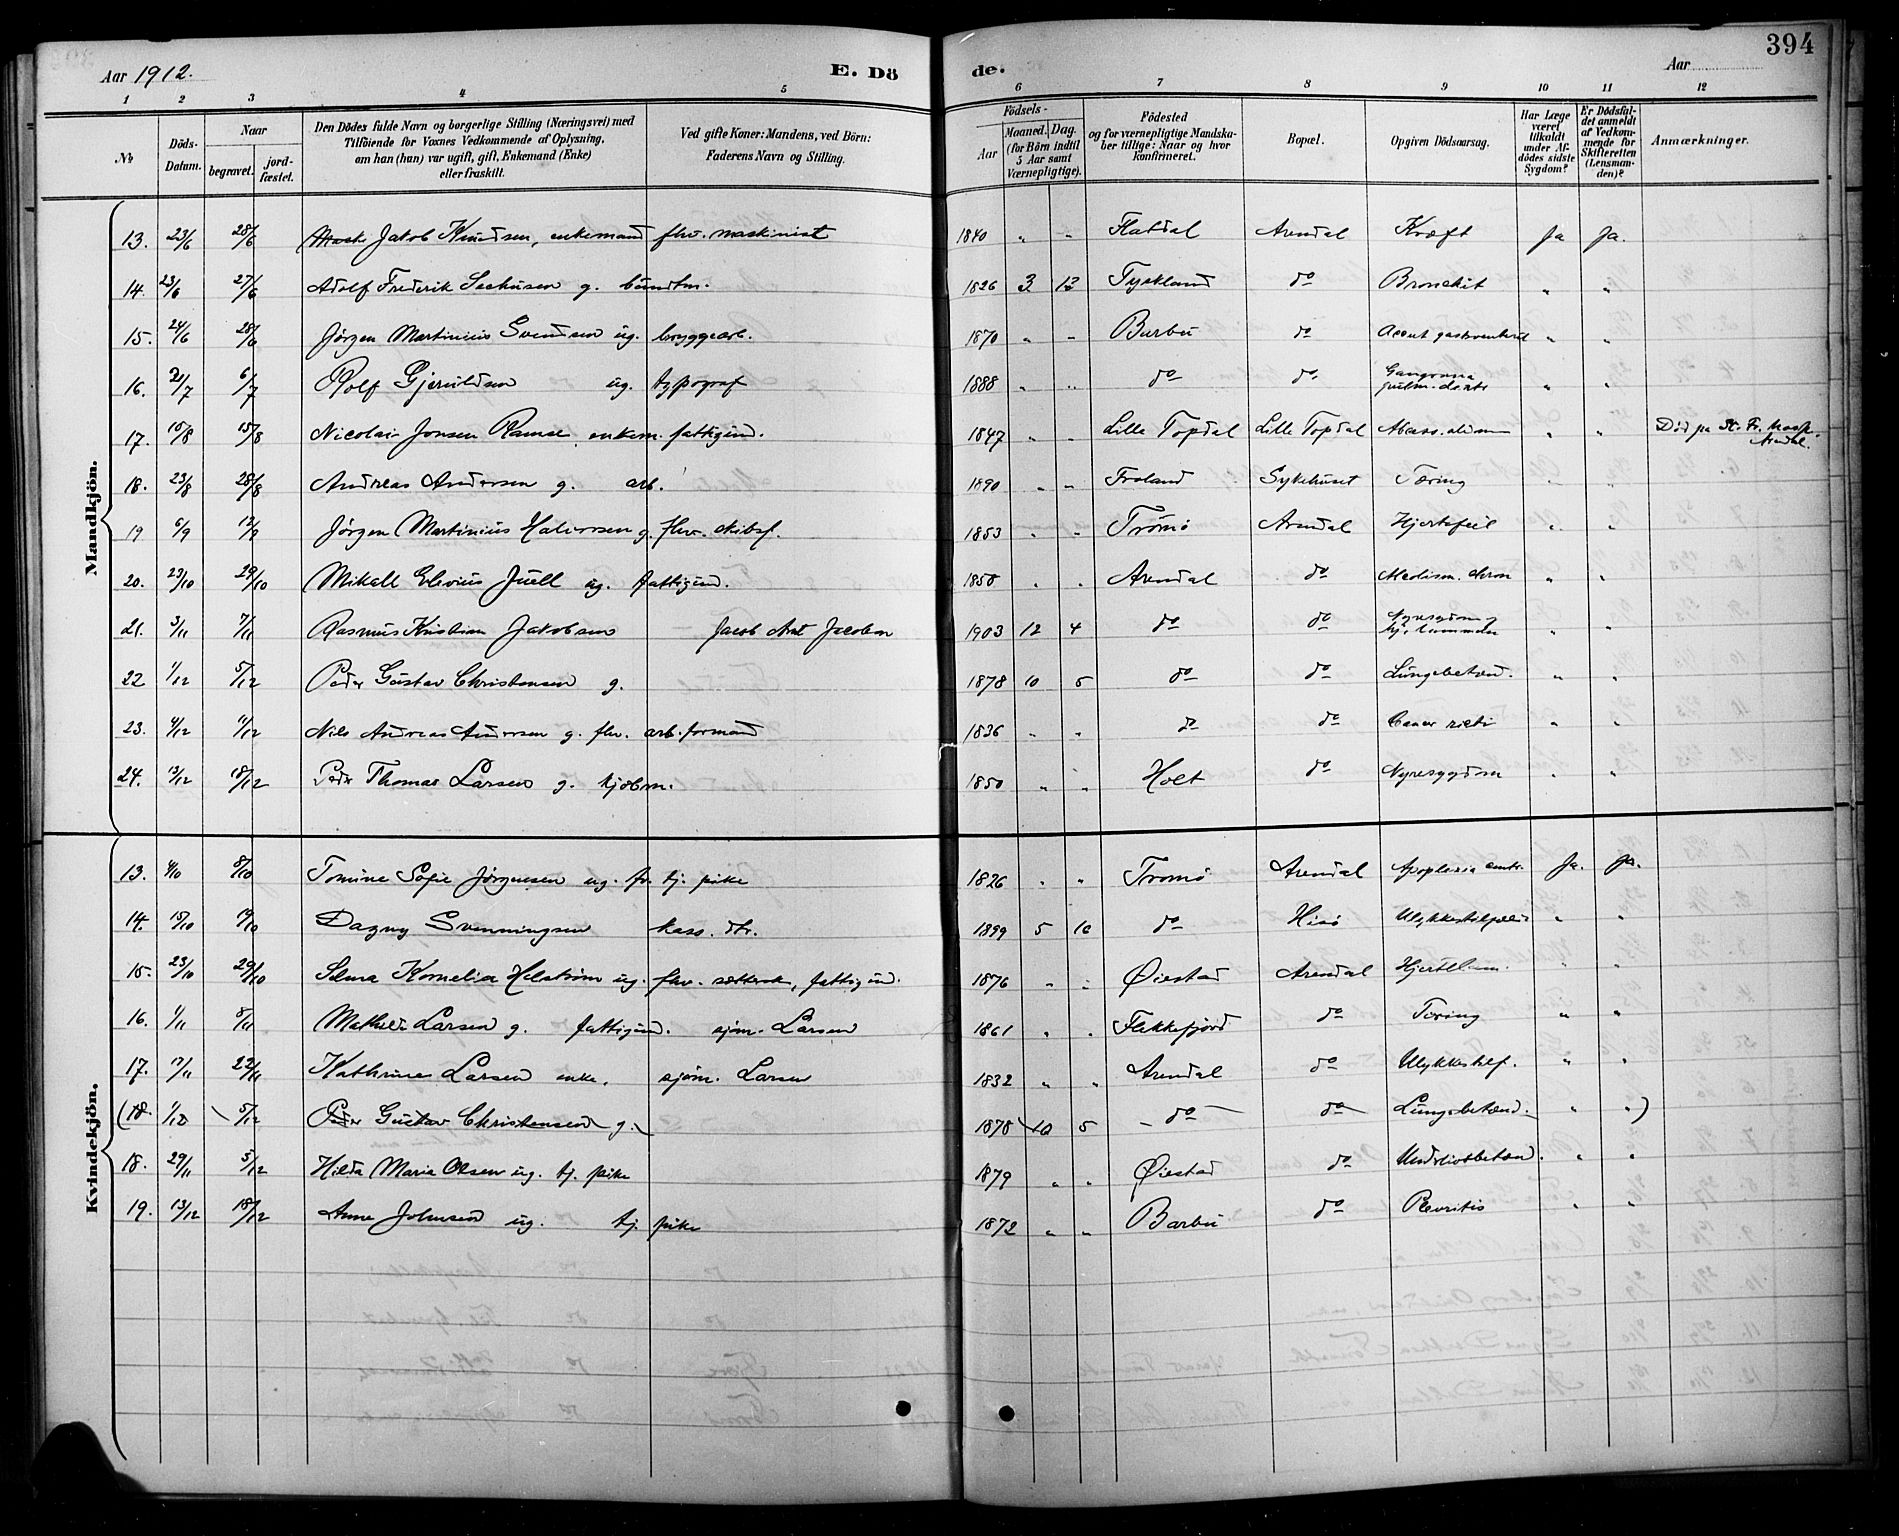 394
Aar 1912. E. Dö de. Aar
1 2 3 4 5 6 7 8 9 10 11 12
№ Döds-Datum. Naar begravet. jord-fæstet. Den Dödes fulde Navn og borgerlige Stilling (Næringsvei) med Tilföiende for Voxnes Vedkommende af Oplysning, om han (hun) var ugift, gift, Enkemand (Enke) eller fraskilt. Ved gifte Koner: Mandens, ved Börn: Faderens Navn og Stilling. Födsels- Aar Maaned. Dag. (for Börn indtil 5 Aar samt Værnepligtige). Födested og for værnepligtige Mandskaber tillige: Naar og hvor konfirmeret. Bopæl. Opgiven Dödsaarsag. Har Læge været tilkaldt under Afdödes sidste Sygdom? Er Dödsfaldet anmeldt af Vedkommende for Skifteretten (Lensmanden)? Anmærkninger.
Mandkjön.
13. 23/6 28/6 Jakob Knudsen, enkemand fhv. maskinist 1840 " " Flatdal Arendal Kræft Ja Ja.
14. 23/6 27/6 Adolf Frederik Seehusen g. buntm. 1826 3 13 Tyskland do Bronchit " "
15. 24/6 28/6 Jørgen Martinius Svendsen ug. bryggearb. 1870 " " Barbu do Acout gastroenterit " "
16. 2/7 6/7 Rolf Gjeruldsen ug. typograf 1888 " " do do Gangræna pulm. dextr " "
17. 15/8 15/8 Nicolai Jonsen Ramse enkem. fattigund. 1847 " " Lille Topdal Lille Topdal Abcess. Død pa St. Fr. Hosp. Arendal.
18. 23/8 28/8 Andreas Andersen g. arb. 1890 " " Froland Sykehuset Tæring
19 6/9 12/9 Jørgen Martinius Halvorsen g. fhv. skibsf. 1853 " " Tromø Arendal Hjertefeil " "
20. 23/10 29/10 Mikall Elevius Juell ug. fattigund. 1850 " " Arendal do chron " "
21. 3/11 7/11 Rasmus Kristian Jakobsen Jacob Arnt Jacobsen 1903 12 4 do do Nyresygdom og " "
22 1/12 5/12 Peder Gustav Christensen g. 1878 10 5 do do Lungebetænd. " "
23. 4/12 11/12 Nils Andreas Andersen g. fhv. arb.formand 1836 " " do do Cancer recti " "
24. 13/12 18/12 Peder Thomas Larsen g. kjøbm. 1850 " " Holt do Nyresygdom " "
Kvindekjön.
13. 4/10 8/10 Tomine Sofie Jørgensen ug. fr. tj. pike 1826 " " Tromø Arendal Apoplexia cerebr. Ja. Ja.
14. 15/10 19/10 Dagny Svenningsen kass. dtr. 1899 5 16 do Hisø Ulykkestilfælde " "
15. 23/10 29/10 Selma Kornelia Helstrøm ug. fhv. fattigund. 1876 " " Øiestad Arendal Hjertelam. " "
16. 1/11 8/11 Mathilde Larsen g. fattigund. sjøm. Larsen 1861 " " Flekkefjord do Tæring " "
17. 17/11 22/11 Kathrine Larsen enke. sjøm. Larsen 1832 " " Arendal do Ulykkestilf. " "
(18. 1/12 5/12 Peder Gustav Christensen g. 1878 10 5 do do Lungebetænd. " " )
18. 29/11 5/12 Hilda Marie Olsen ug. tj. pike 1879 " " Øiestad do Underlivsbetænd. " "
19. 13/12 18/12 Anna Johnsen ug. tj. pike 1872 " " Barbu do Pleuritis " "